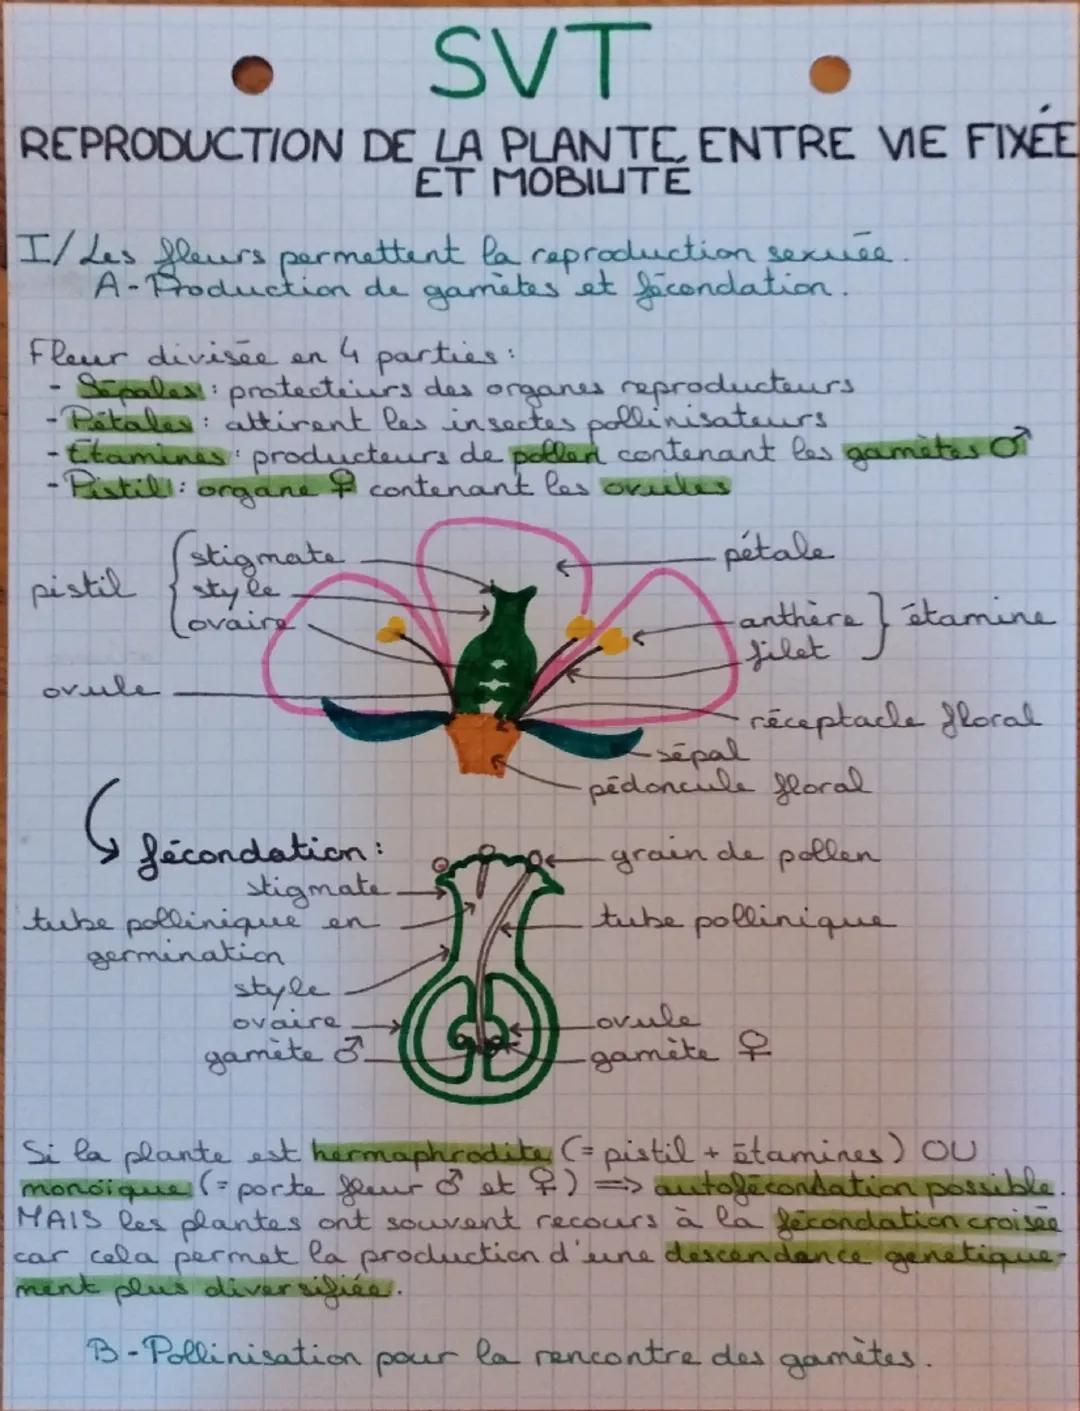 SVT
REPRODUCTION DE LA PLANTE, ENTRE VIE FIXÉE
ET MOBILITÉ
I/ Les fleurs permettent la reproduction sexuée.
A - Production de gamètes et fécondation.
Fleur divisée en 4 parties :
- Sépales : protecteurs des organes reproducteurs
- Pétales : attirent les insectes pollinisateurs
- Étamines : producteurs de pollen contenant les gamètes ♂
- Pistil : organe ♀ contenant les ovules
pistil { stigmate
style
ovaire
ovule
pétale
anthère } étamine
filet
réceptacle floral
sépal
pédoncule floral
fécondation :
stigmate
tube pollinique en
germination
style
ovaire
gamète ♂
grain de pollen
tube pollinique
ovule
gamète ♀
Si la plante est hermaphrodite (= pistil + étamines) OU
monoïque (= porte fleur ♂ et ♀) => autofécondation possible.
MAIS les plantes ont souvent recours à la fécondation croisée
car cela permet la production d'une descendance génétique-
ment plus diversifiée.
B - Pollinisation pour la rencontre des gamètes.